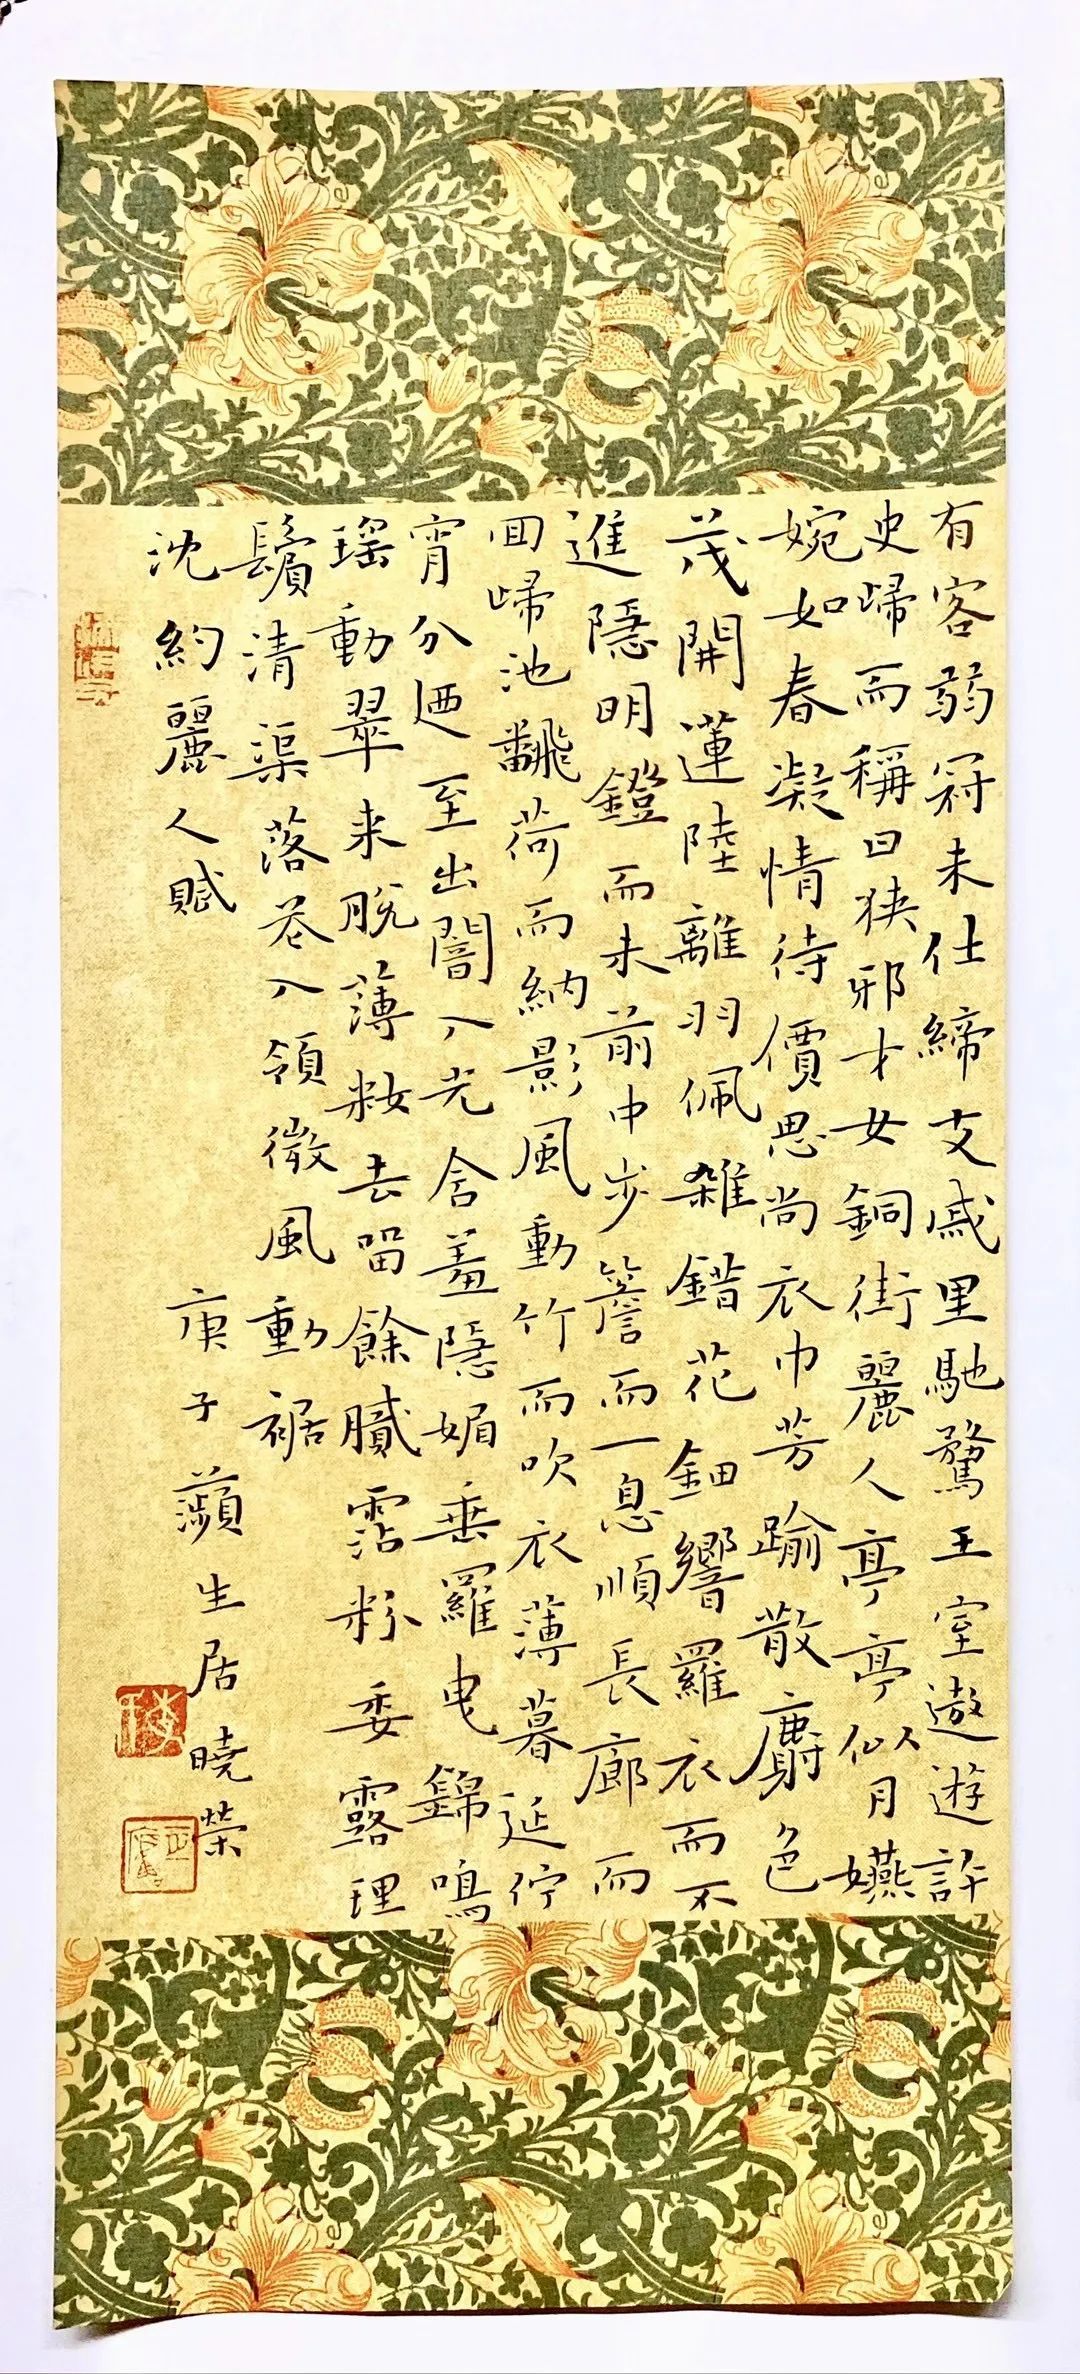 有客弱冠未仕締交戚里馳騖王室遨遊許
史歸而稱曰狹邪才女銅街麗人亭亭似月嬿
婉如春凝情待價思尚衣巾芳踰散麝色
茂開蓮陸離羽佩雜錯花鈿響羅衣而不
進隱明鐙而未前中步簷而一息順長廊而
回歸池飜荷而納影風動竹而吹衣薄暮延佇
宵分迺至出闇入光含羞隱媚垂羅曳錦鳴
瑤動翠来脫薄粧去留餘膩霑粉委露理
鬢清渠落花入領微風動裾
沈約麗人賦
庚子蘋生居曉榮